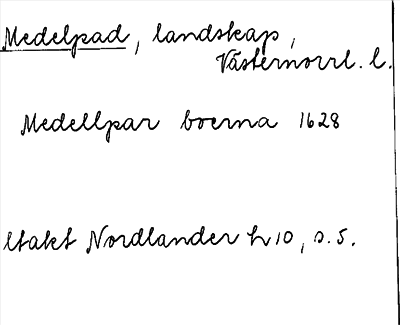 Medelpad, landskap,
Västernorrl. l.
Medellpar boerna 1628
Itakt Nordlander h 10, s. 5.